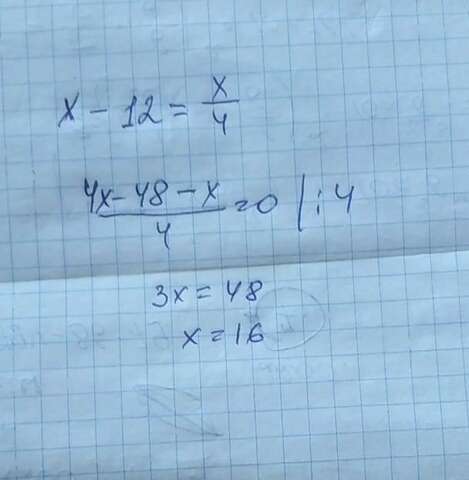 x - 12 = x/4
4x - 48 - x / 4 = 0 | : 4
3x = 48
x = 16